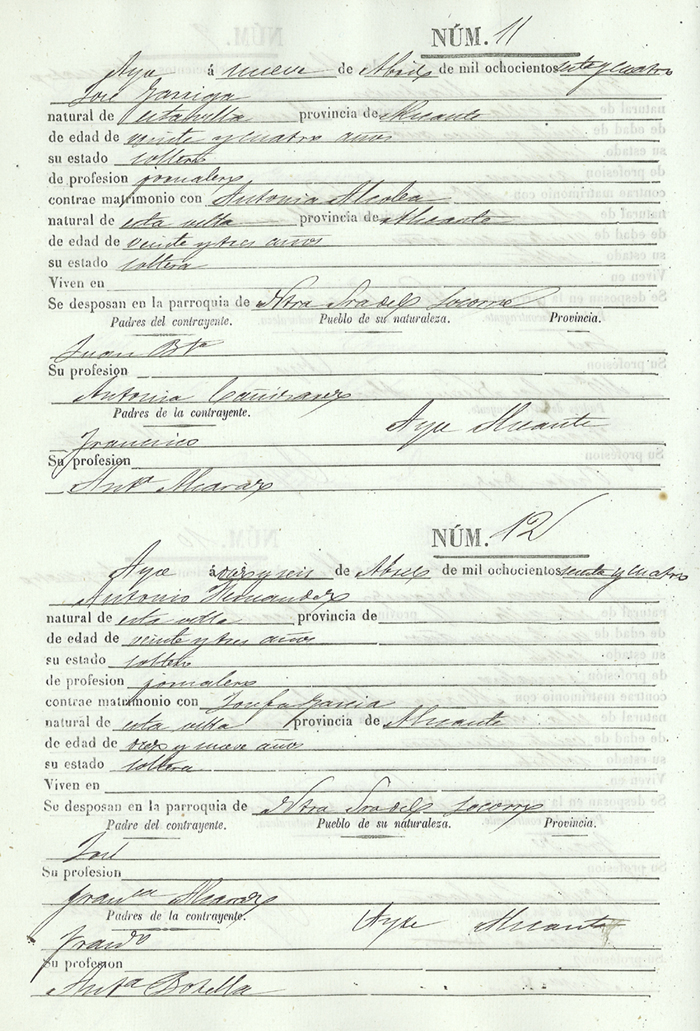 NÚM. 11
Aspe á nueve de Abril de mil ochocientos setenta y cuatro
José Garriga
natural de esta villa provincia de Alicante
de edad de veinte y cuatro años
su estado soltero
de profesion jornalero
contrae matrimonio con Antonia Alcolea
natural de esta villa provincia de Alicante
de edad de veinte y tres años
su estado soltera
Viven en
Se desposan en la parroquia de Ntra Sra del Socorro
Padres del contrayente. Pueblo de su naturaleza. Provincia.
Juan Bta
Su profesion
Antonia Cañizares
Padres de la contrayente.
Francisco Aspe Alicante
Su profesion
Anta Alcaraz
NÚM. 12
Aspe á diez y seis de Abril de mil ochocientos setenta y cuatro
Antonio Hernandez
natural de esta villa provincia de
de edad de veinte y tres años
su estado soltero
de profesion jornalero
contrae matrimonio con Josefa Garcia
natural de esta villa provincia de Alicante
de edad de diez y nueve años
su estado soltera
Viven en
Se desposan en la parroquia de Ntra Sra del Socorro
Padre del contrayente. Pueblo de su naturaleza. Provincia.
José
Su profesion
Franca Alcaraz
Padres de la contrayente. Aspe Alicante
Franco
Su profesion
Anta Botella